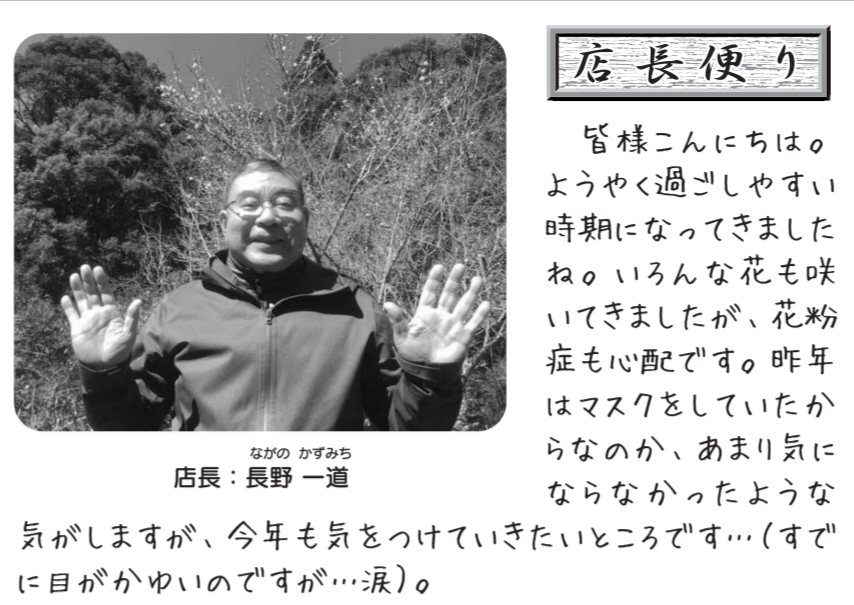 店長便り
皆様こんにちは。
ようやく過ごしやすい
時期になってきました
ね。いろんな花も咲
いてきましたが、花粉
症も心配です。昨年
はマスクをしていたか
らなのか、あまり気に
ならなかったような
気がしますが、今年も気をつけていきたいところです…(すで
に目がかゆいのですが…涙)。
ながの かずみち
店長：長野 一道